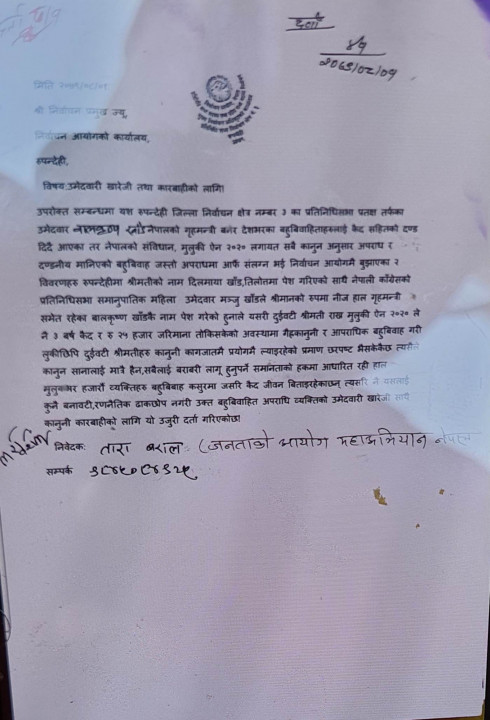 दर्ता
५१
२०७९/०८/०१
मिति
श्री निर्वाचन प्रमुख ज्यू,
निर्वाचन आयोगको कार्यालय,
रुपन्देही,
विषय:उमेदवारी खारेजी तथा कारबाहीको लागि।
उपरोक्त सम्बन्धमा यश रुपन्देही जिल्ला निर्वाचन क्षेत्र नम्बर ३ का प्रतिनिधिसभा प्रतक्ष तर्फका
उमेदवार बालकृष्ण खाँडले नेपालको गृहमन्त्री बनेर देशभरका बहुबिवाहिताहरुलाई कैद सहितको दण्ड
दिदै आएका तर नेपालको संविधान, मुलुकी ऐन २०२० लगायत सबै कानुन अनुसार अपराध र
दण्डनीय मानिएको बहुबिवाह जस्तो अपराधमा आफै संलग्न भई निर्वाचन आयोगमै बुझाएका २
विवरणहरु रुपन्देहीमा श्रीमतीको नाम दिलमाया खाँड,तिलोतमा पेश गरिएको साथै नेपाली काँग्रेसको
प्रतिनिधिसभा समानुपातिक महिला उमेदवार मञ्जु खाँडले श्रीमानको रुपमा नीज हाल गृहमन्त्री
समेत रहेका बालकृष्ण खाँडकै नाम पेश गरेको हुनाले यसरी दुईवटी श्रीमती राख मुलुकी ऐन २०२० ले
नै ३ बर्ष कैद र रु २५ हजार जरिमाना तोकिसकेको अवस्थामा गैह्रकानुनी र आपराधिक बहुबिवाह गरी
लुकीछिपि दुईवटी श्रीमतीहरु कानुनी कागजातमै प्रयोगमै ल्याइरहेको प्रमाण छरपष्ट भैसकेकैछ त्यसैले
कानुन सानालाई मात्रै हैन,सबैलाई बराबरी लागू हुनुपर्ने समानताको हकमा आधारित रही हाल
मुलुकभर हजारौं व्यक्तिहरु बहुबिबाह कसुरमा जसरि कैद जीवन बिताइरहेकाछन् त्यसरि नै यसलाई
कुनै बनावटी,रणनैतिक ढाकछोप नगरी उक्त बहुबिवाहित अपराधि व्यक्तिको उमेदवारी खारेजी साथै
कानुनी कारबाहीको लागि यो उजुरी दर्ता गरिएकोछ।
निवेदक: तारा बराल (जनताको आयोग महाअभियान नेपाल
सम्पर्क